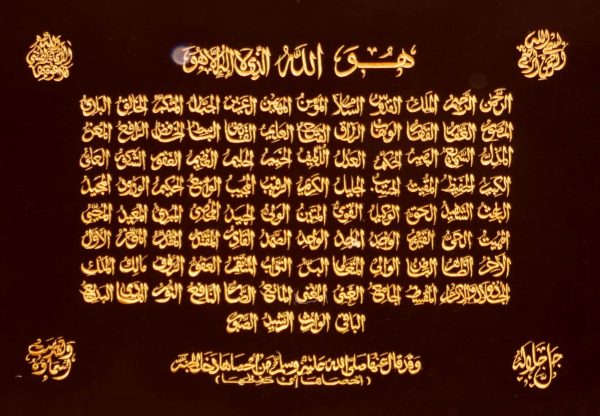 بسم الله الرحمن الرحيم
هو الله الذي لا إله إلا هو
ولله الأسماء الحسنى فادعوه بها
الرحمن الرحيم الملك القدوس السلام المؤمن المهيمن العزيز الجبار المتكبر الخالق البارئ
المصور الغفار القهار الوهاب الرزاق الفتاح العليم القابض الباسط الخافض الرافع المعز
المذل السميع البصير الحكم العدل اللطيف الخبير الحليم العظيم الغفور الشكور العلي
الكبير الحفيظ المقيت الحسيب الجليل الكريم الرقيب المجيب الواسع الحكيم الودود المجيد
الباعث الشهيد الحق الوكيل القوي المتين الولي الحميد المحصي المبدئ المعيد المحيي
المميت الحي القيوم الواجد الماجد الواحد الصمد القادر المقتدر المقدم المؤخر الأول
الآخر الظاهر الباطن الوالي المتعالي البر التواب المنتقم العفو الرؤوف مالك الملك
ذو الجلال والإكرام المقسط الجامع الغني المغني المانع الضار النافع النور الهادي البديع
الباقي الوارث الرشيد الصبور
جل جلاله
وقد قال عنها صلى الله عليه وسلم من أحصاها دخل الجنة
(أحصاها أي حفظها)
وتقدست أسماؤه